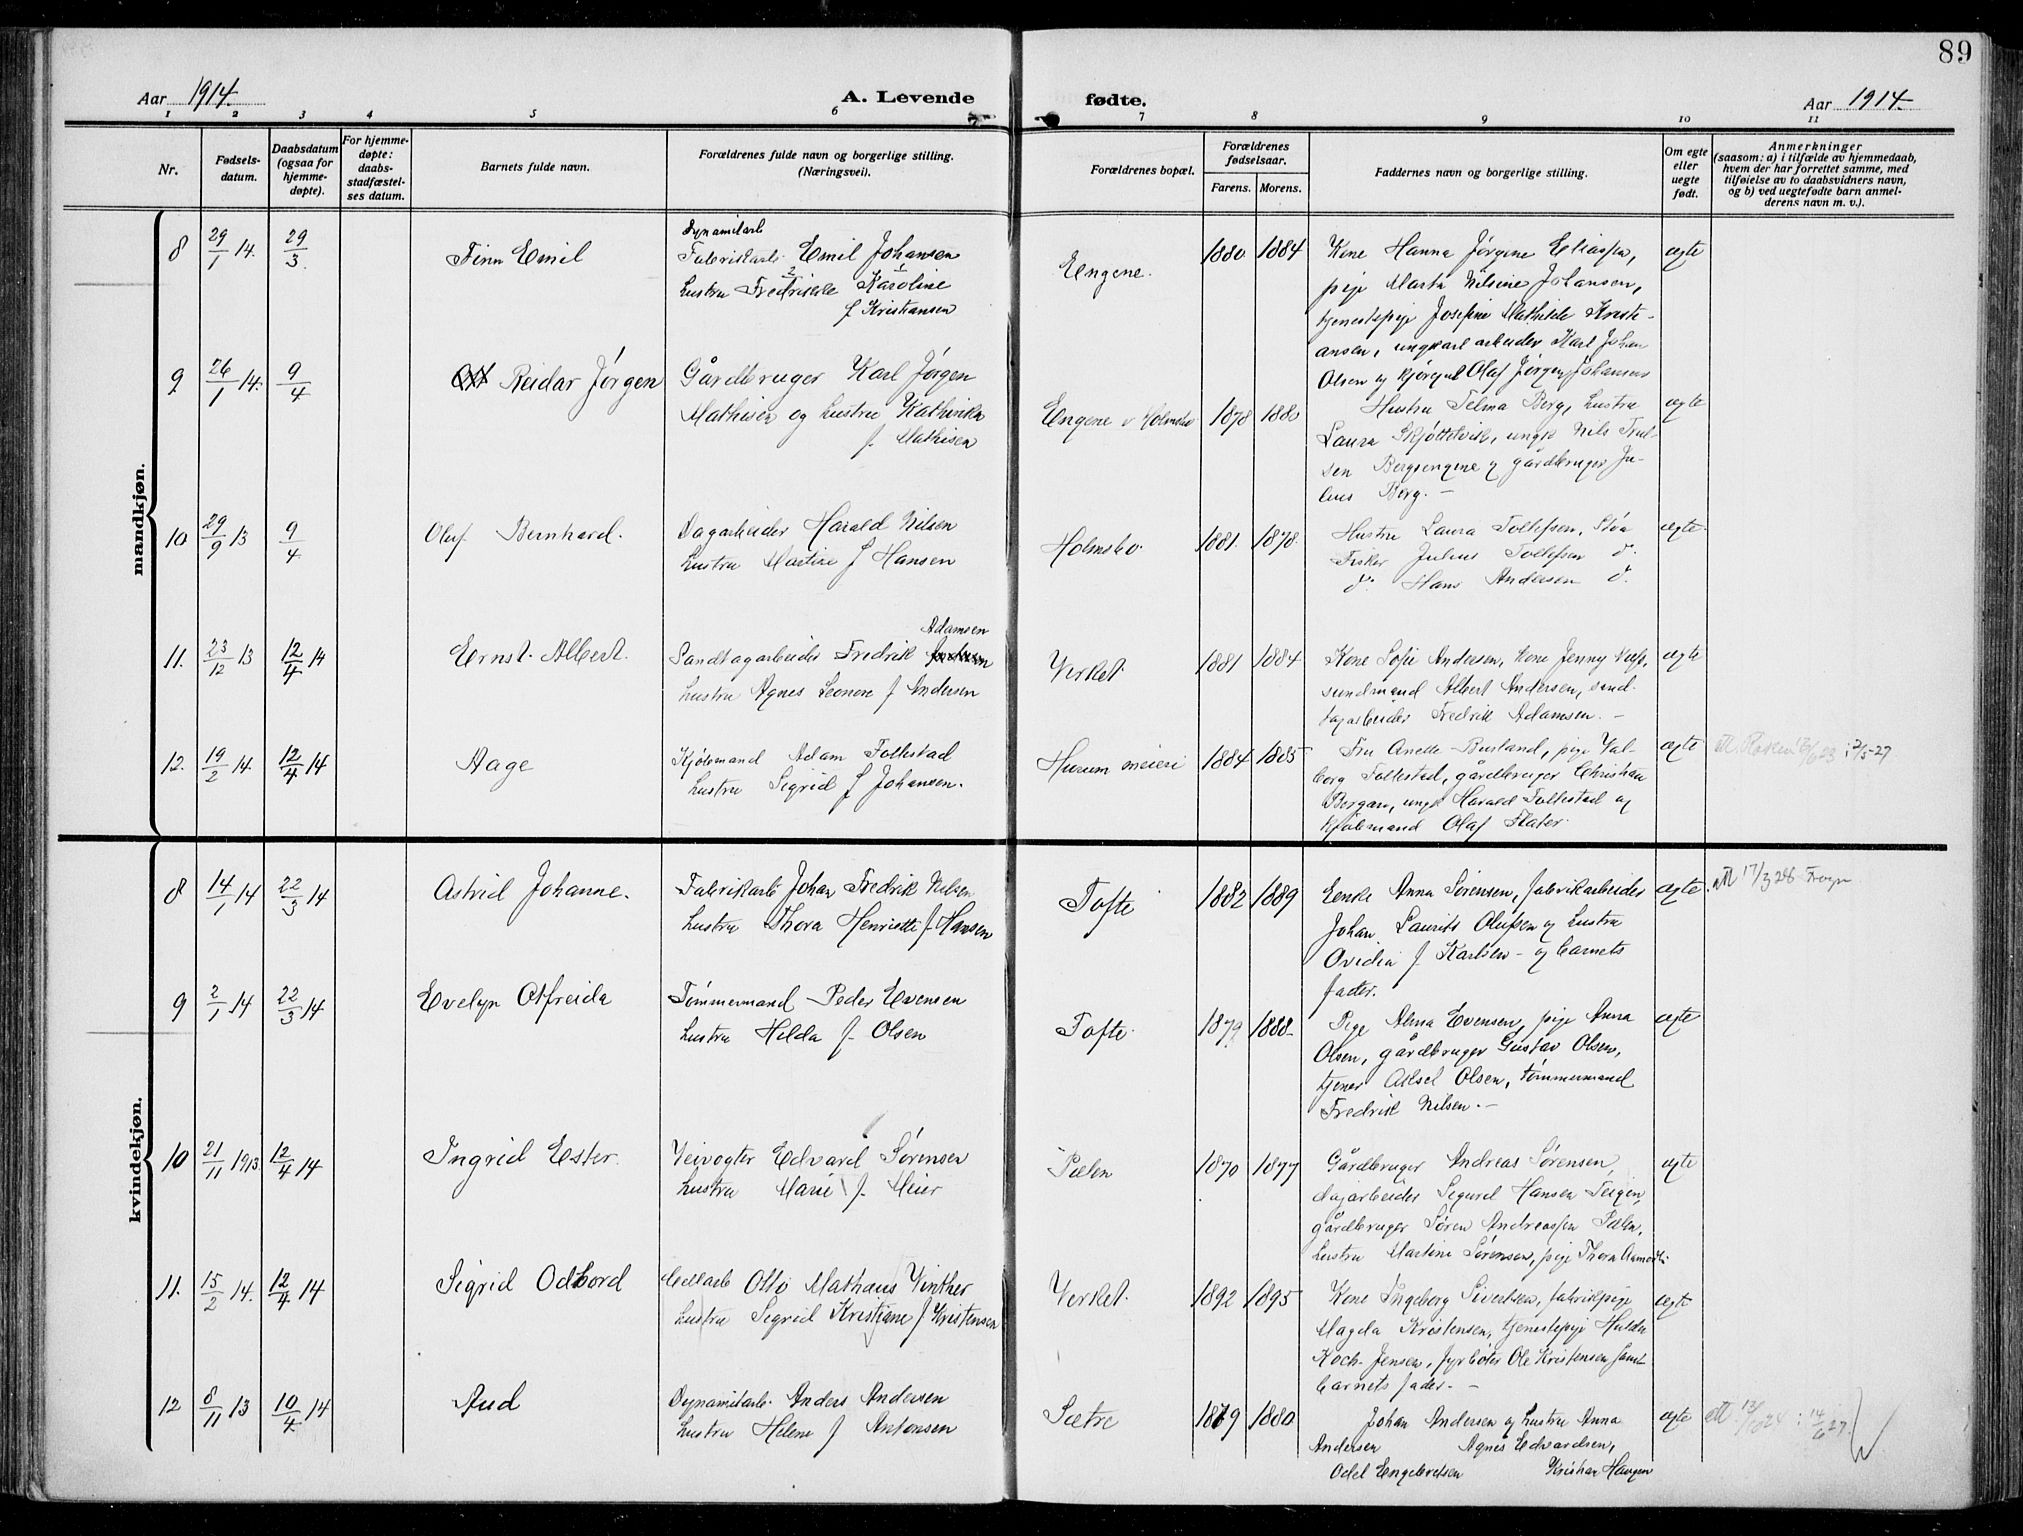 89
Aar 1914.
A. Levende fødte.
Aar 1914.
1 2 3 4 5 6 7 8 9 10 11
Nr.
Fødsels-
datum.
Daabsdatum
(ogsaa for
hjemme-
døpte).
For hjemme-
døpte:
daabs-
stadfæstel-
ses datum.
Barnets fulde navn.
Forældrenes fulde navn og borgerlige stilling.
(Næringsvei).
Forældrenes bopæl.
Forældrenes
fødselsaar.
Farens. Morens.
Faddernes navn og borgerlige stilling.
Om egte
eller
uegte
født.
Anmerkninger
(saasom: a) i tilfælde av hjemmedaab,
hvem der har forrettet samme, med
tilføielse av to daabsvidners navn,
og b) ved uegtefødte barn anmel-
derens navn m. v.).
mandkjøn.
8 29/1 14. 29/3.
Finn Emil
Dynamitarb
Fabrikarb. Emil Johansen
hustru Fredrikke 2 Karoline 1
f Kristiansen
Engene.
1880 1884
Kone Hanna Jørgine Eliassen,
pige Marta Nilsine Johansen,
tjenestepige Josefine Mathilde Kristi-
ansen, ungkarl arbeider Karl Johan
Olsen og Olaf Jørgen Johansen
egte
9 26/1 14. 9/4
Reidar Jørgen
Gårdbruger Karl Jørgen
Mathisen og hustru Kathinka
f. Mathisen
Engene v Holmsbo
1878 1880
Hustru Telma Berg, hustru
Laura Skjøttelvik, ungk Nils Trul-
sen Bergsengene og gårdbruger Ju-
lius Berg. —
egte
10 29/9 13 9/4
Oluf Bernhard.
Dagarbeider Harald Nilsen
hustru Martine f Hansen
Holmsbo.
1881. 1878.
Hustru Laura Tollefsen, Støa
Fisker Julius Tollefsen d.
d. Hans Andersen d.
egte.
11. 23/12 13 12/4 14
Ernst Albert.
Adamsen
Sandtagarbeider Fredrik
hustru Agnes Leonore f Andersen
Verket.
1881 1884
Kone Sofie Andersen, kone Jenny
sundmand Albert Andersen, sand-
tagarbeider Fredrik Adamsen. —
egte
12. 19/2 14. 12/4 14
Aage
Kjølemand Adam Follestad
hustru Sigrid f Johansen.
Hurum meieri
1884 1885
Fru Anette Burland, pige Val-
borg Follestad, gårdbruger Christian
Bergan, ungk Harald Follestad og
kjølemand Olaf Slater.
egte
kvindekjøn.
8 14/1 14 22/3 14
Astrid Johanne.
Fabrikarb Johan Fredrik Nilsen
hustru Thora Henriette f. Hansen
Tofte
1882 1889
Enke Anna Sørensen, fabrikarbeider
Johan Laurits Olufsen og hustru
Ovidia f. Karlsen — og barnets
fader.
egte
Att 17/3 28 Frogn
9 2/1 14 22/3 14
Evelyn Alfreida
Tømmermand Peder Evensen
hustru Hilda f. Olsen
Tofte.
1879 1888
Pige Alma Evensen, pige Anna
Olsen, gårdbruger Gustav Olsen,
tjener Aksel Olsen, tømmermand
Fredrik Nilsen. —
egte
10 21/11 1913. 12/4 14
Ingrid Ester.
Veivogter Edvard Sørensen
hustru Marie f. Meier
Sælen
1870 1877
Gårdbruger Andreas Sørensen,
dagarbeider Sigurd Hansen Teigen,
gårdbruger Søren Andreassen Sælen,
hustru Martine Sørensen, pige Thora
egte
11. 15/2 14. 12/4 14
Sigrid Odbord
Otto Mathæus Vinther
hustru Sigrid Kristiane f Kristensen
Verket.
1892 1895
Kone Ingeborg Sivertsen, fabrikpige
Magda Kristensen, tjenestepige Hulda
Koch-Jensen, fyrbøter Ole Kristensen samt
barnets fader. —
egte
12 8/11 13 10/4 14
Aud
Dynamitarb. Anders Andersen
hustru Helene f Antonsen
Sætre
1879 1880
Johan Andersen og hustru Anna
Andersen Agnes Edvardsen,
Odd Engebretsen Kristian Haugen
egte